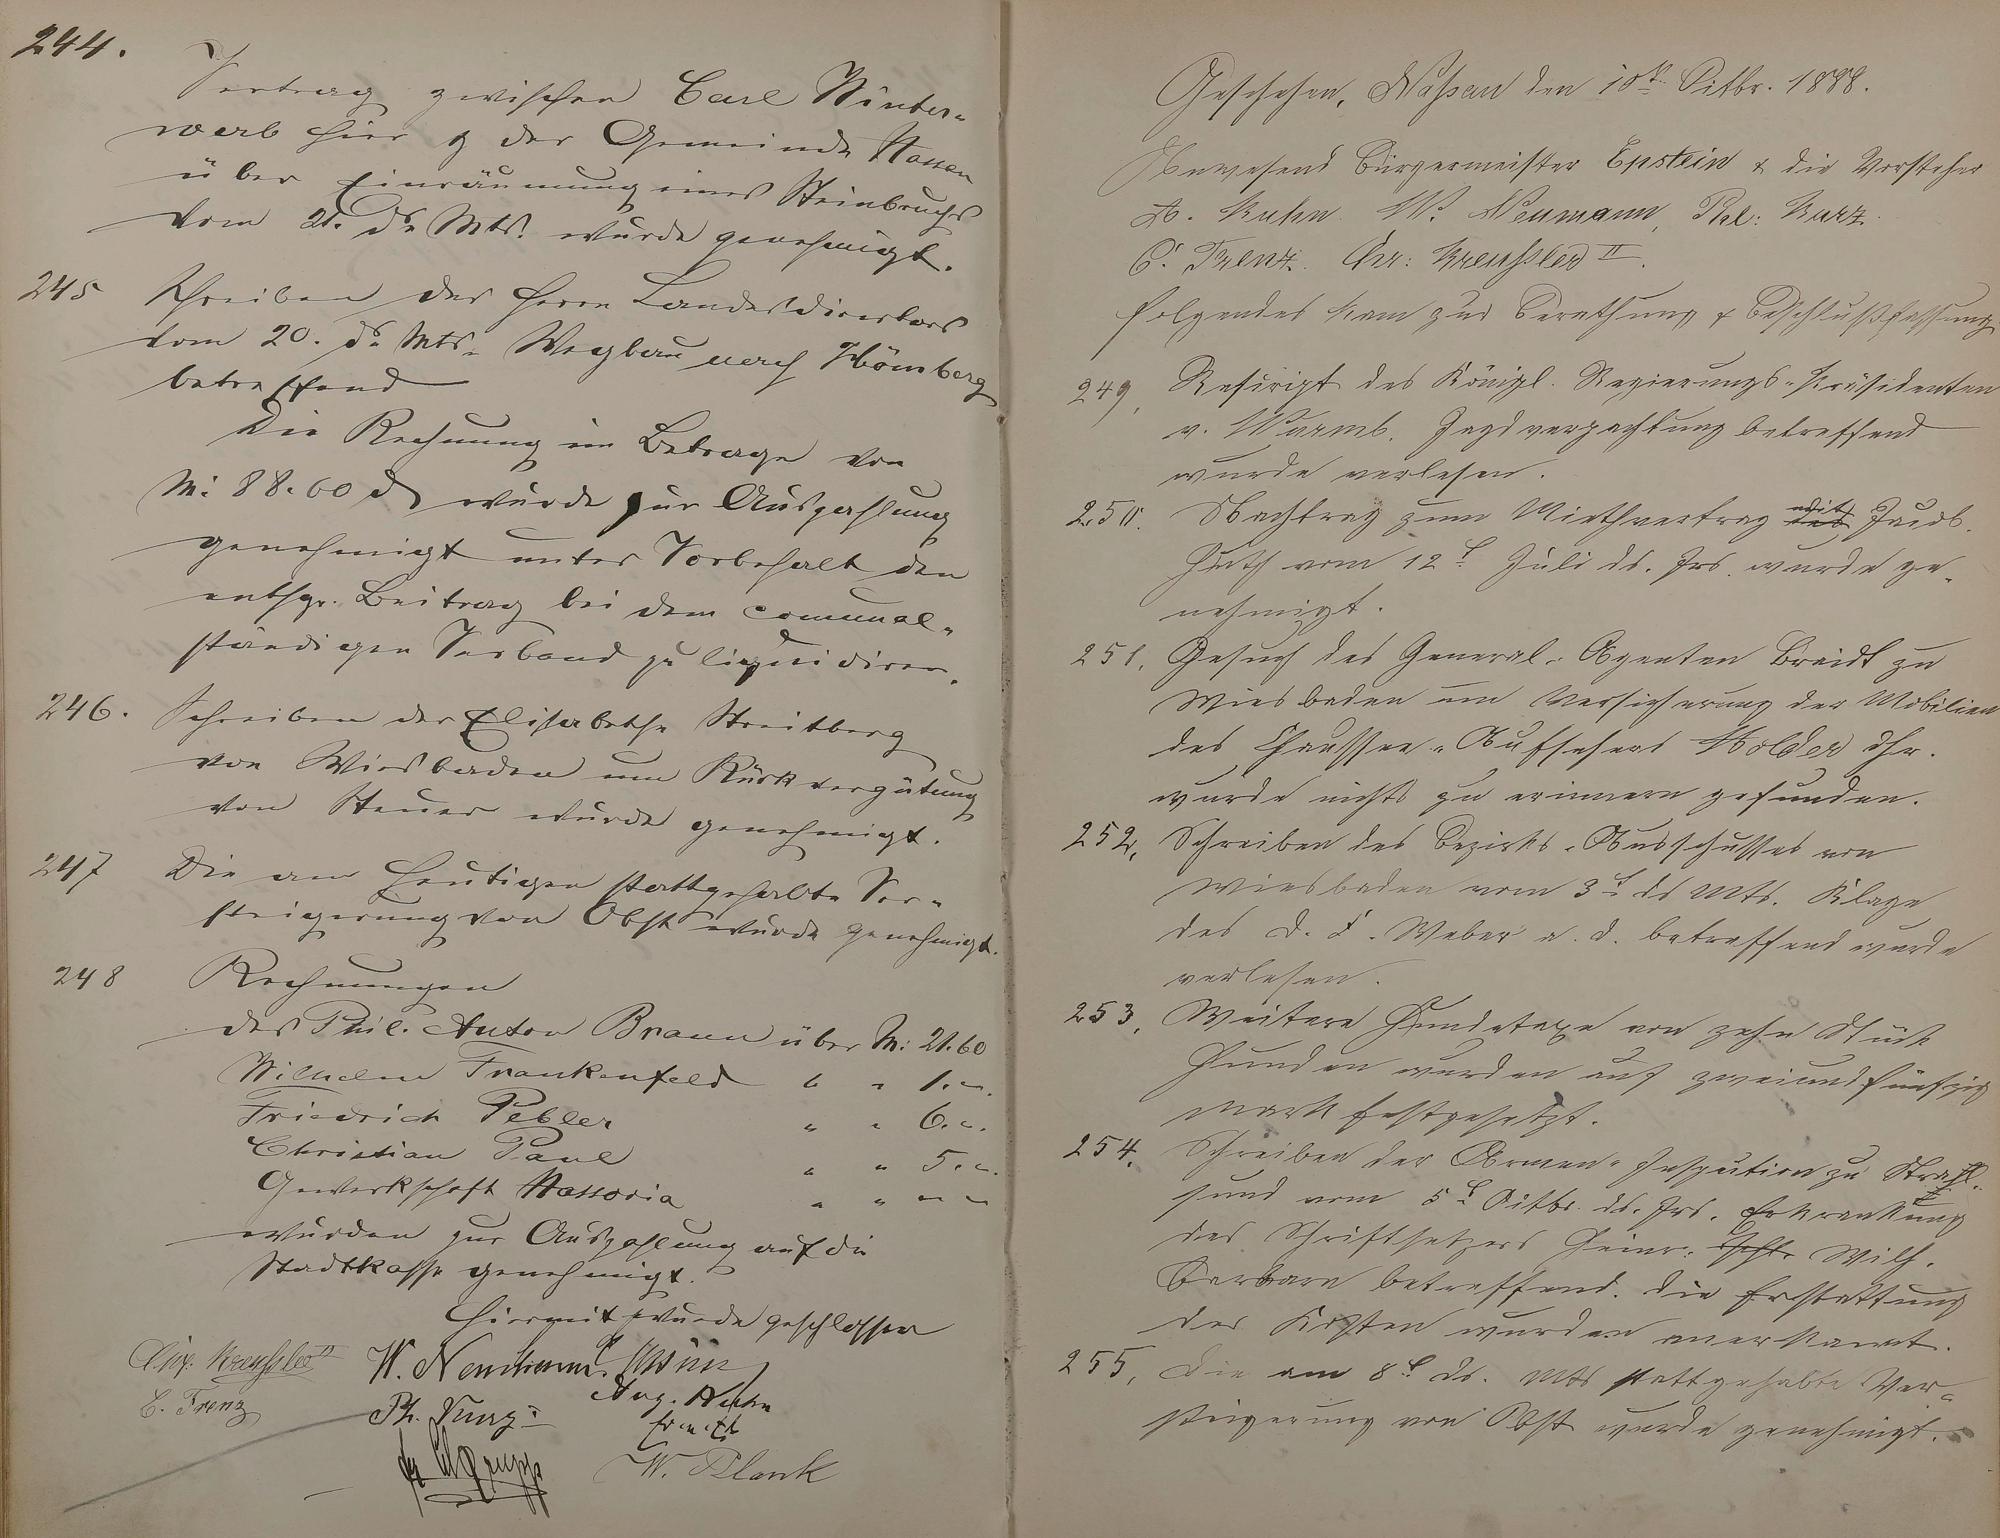 244.
Vertrag zwischen Carl Winter-
werb hier & der Gemeinde Nassau
über Einräumung eines Steinbruchs
vom 21. ds Mts. wurde genehmigt.
245 Schreiben des Herrn Landesdirectors
vom 20. ds Mts. Wegbau nach Hömberg
betreffend
Die Rechnung im Betrage von
M: 88.60 d wurde zur Auszahlung
genehmigt unter Vorbehalt den
entspr. Beitrag bei dem comunal-
ständigen Verband zu liquidiren.
246. Schreiben der Elisabethe Streitberg
von Wiesbaden um Rückvergütung
von Steuer wurde genehmigt.
247 Die am heutigen stattgehabte Ver-
steigerung von Obst wurde genehmigt.
248 Rechnungen
des Phil. Anton Braun über M: 21.60
Wilhelm Frankenfeld " " 1.-.
Friedrich Pebler " " 6.-.
Christian Paul " " 5.-.
Gewerkschaft Nassovia " " - -
wurden zur Auszahlung auf die
Stadtkasse genehmigt.
Hiermit wurde geschlossen
Chr. Kreußler II W. Neumann
C. Trenz Ph. Kurz Aug. Kuhn
W. Plank
Geschehen, Nassau den 10t. Octbr. 1888.
Anwesend Bürgermeister Epstein & die Vorsteher
A. Kuhn. W. Neumann, Phl: Kurz.
C. Trenz. Chr: Kreußler II.
Folgendes kam zur Berathung & Beschlußfassung
249, Rescript des Königl. Regierungs-Präsidenten
v. Wurmb, Jagdverpachtung betreffend
wurde verlesen.
250. Nachtrag zum Miethvertrag mit Jacob
Huth vom 12t Juli ds. Jrs. wurde ge-
nehmigt.
251, Gesuch des General-Agenten Breidt zu
Wiesbaden um Versicherung der Mobilien
des Chaussee-Aufsehers Nolder dhr.
wurde nichts zu erinnern gefunden.
252, Schreiben des Bezirks-Ausschusses von
Wiesbaden vom 3t ds Mts. Klage
des D. F. Weber a. d. betreffend wurde
verlesen.
253, Weitere Hundetaxe von zehn Stück
Hunden wurden auf zweiundfünfzig
Mark festgesetzt.
254, Schreiben der Armen-Inspection zu Stral-
sund vom 5t Octbr. ds. Jrs. Erkrankung
des Schriftsetzers Heinr: Wilh.
betreffend. Die Erstattung
der Kosten wurden anerkannt.
255, Die am 8t ds. Mts stattgehabte Ver-
steigerung von Obst wurde genehmigt.